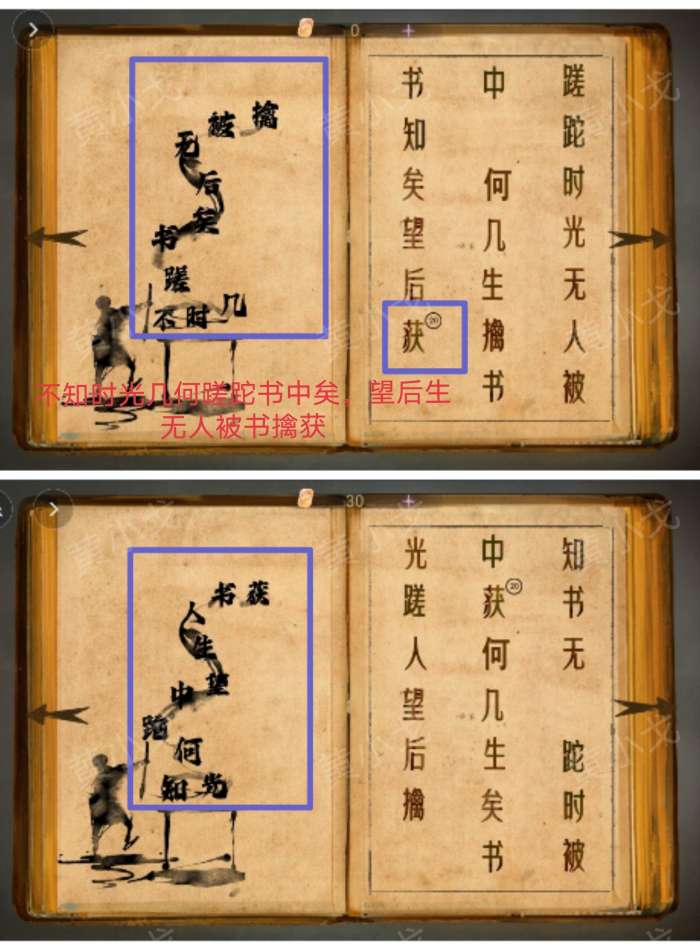 0
被擒
无
后
矣
书
蹉
不时几
蹉跎时光无人被
中何几生擒书
书知矣望后获
20
不知时光几何蹉跎书中矣,望后生
无人被书擒获
30
书获
人
生
望
中
跎
何
知光
知书无跎时被
中获何几生矣书
20
光蹉人望后擒
黄小戈